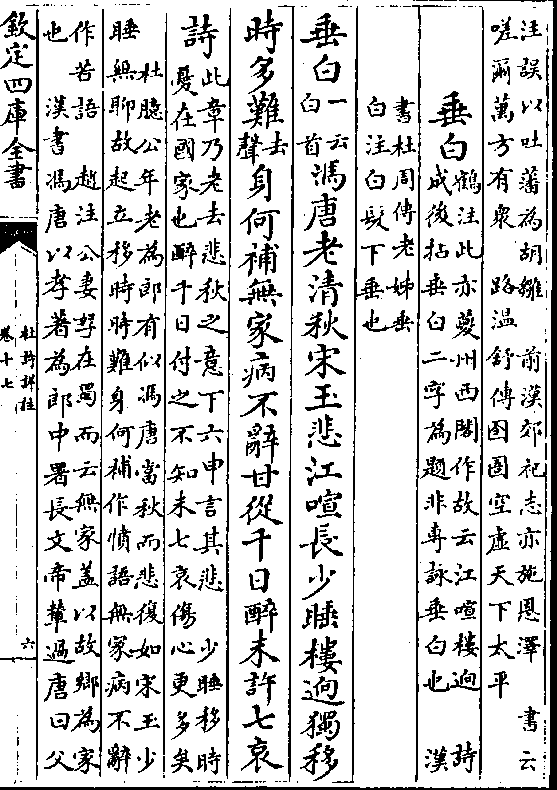 注誤以吐蕃為胡雛　前漢郊祀志亦施恩澤　書云
嗟爾萬方有衆　路溫舒傳囹圄空虛天下太平
垂白
鶴注此亦夔州西閣作故云江喧樓逈　詩
成後拈垂白二字為題非專詠垂白也　漢
書杜周傳老姊垂
白注白髮下垂也
垂白一云白首馮唐老清秋宋玉悲江喧長少睡樓逈獨移
時多難去聲身何補無家病不辭甘從千日醉未許七哀
詩
此章乃老去悲秋之意下六申言其悲　少睡移時
憂在國家也醉千日付之不知未七哀傷心更多矣
杜臆公年老為郎有似馮唐當秋而悲復如宋玉少
睡無聊故起立移時時難身何補作憤語無家病不辭
作苦語　趙注公妻孥在蜀而云無家蓋以故鄉為家
也　漢書馮唐以孝著為郎中署長文帝輦過唐曰父
欽定四庫全書
杜詩詳註
卷十七
六